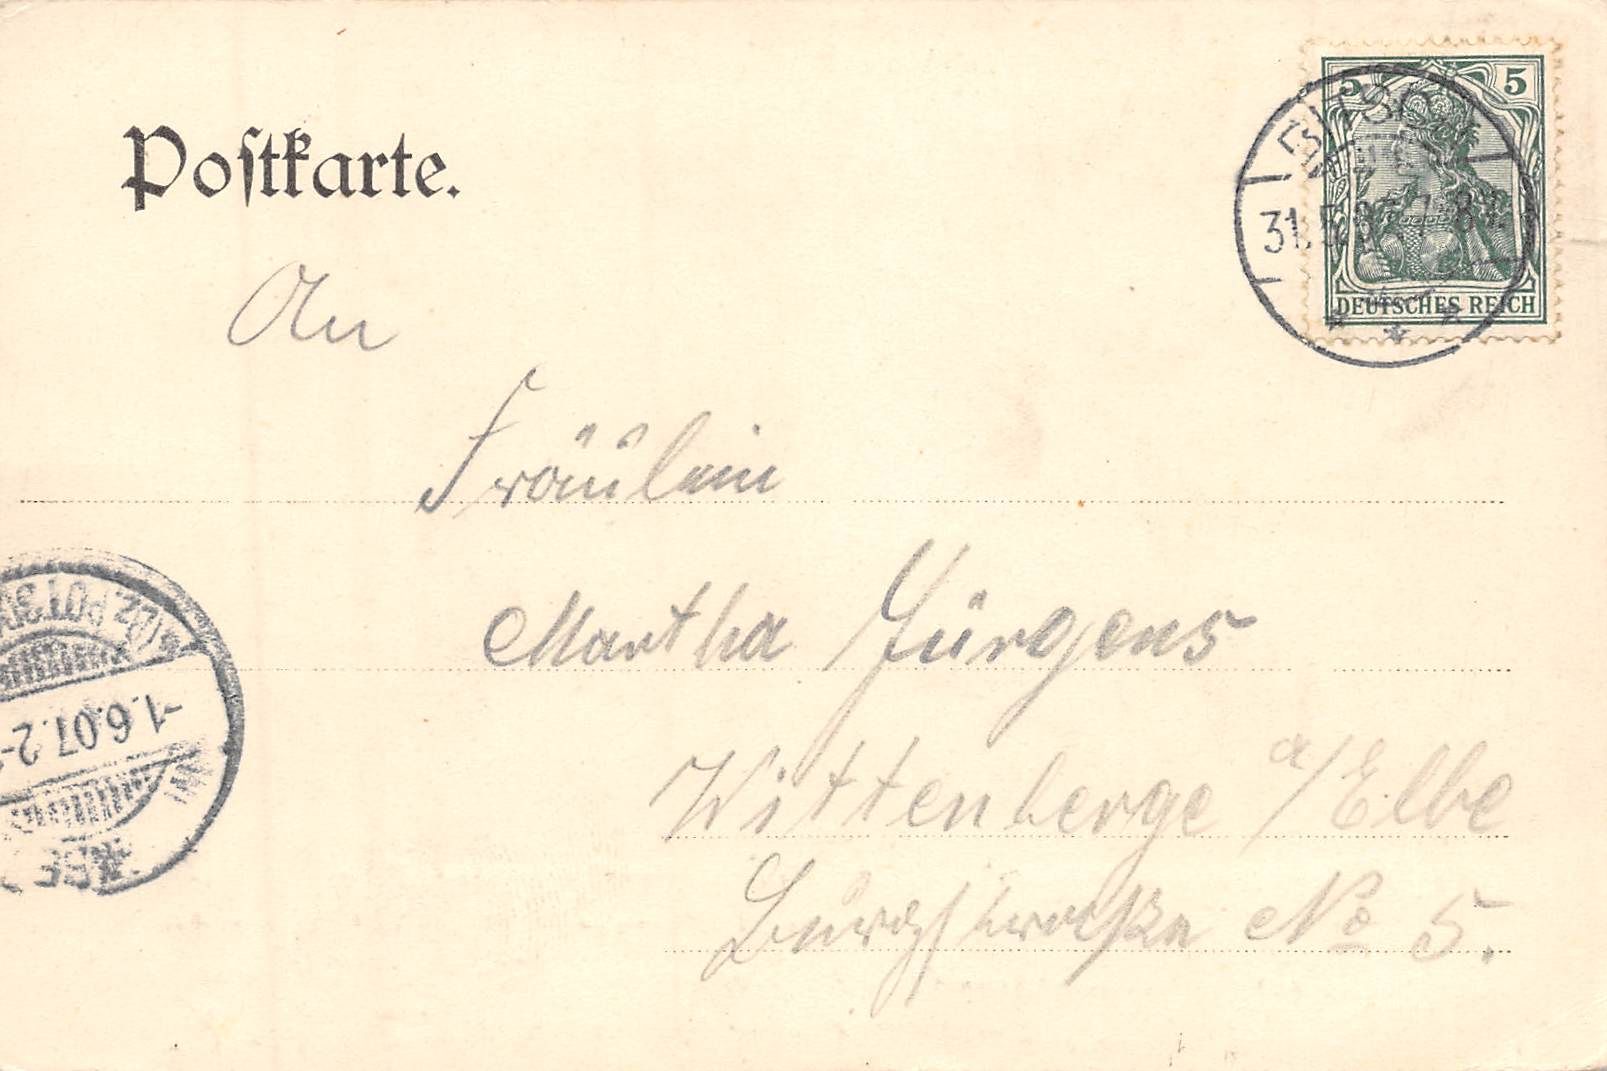 Postkarte.
5 5
BITSCH
31.5.07
DEUTSCHES REICH
An
Fräulein
Martha Jürgens
Wittenberge a/Elbe
Burgstraße No 5.
-1.6.07.2-